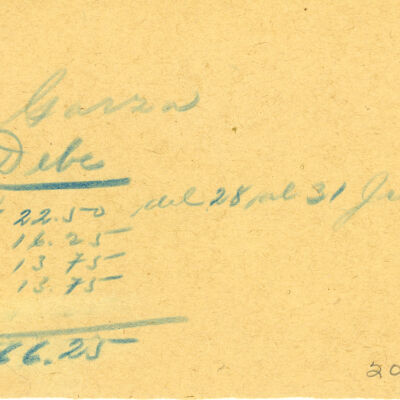 Garza
Debe
22.50 del 28 al 31
16.25
13.75
13.75
66.25
20